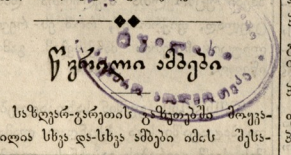 წვრილი ამბები
საზღვარ-გარეთის გაზეთებში მოყვა-
ილია სხვა და-სხვა ამბები იმის შესა-